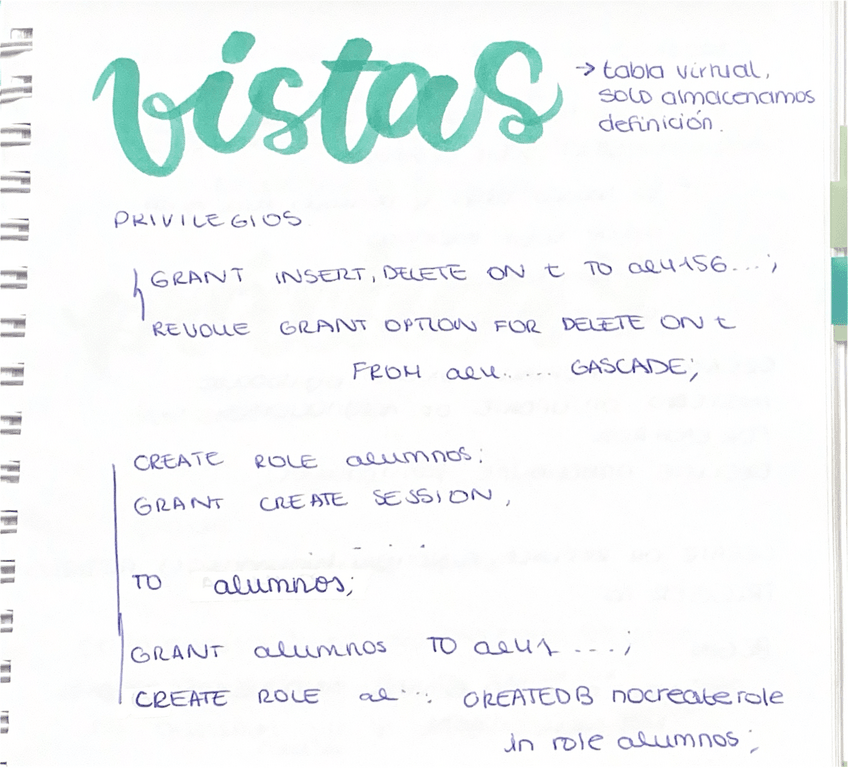 vistas
→ tabla virtual,
solo almacenamos
definición.
PRIVILEGIOS
GRANT INSERT, DELETE ON t TO alu4156...;
REVOUE GRANT OPTION FOR DELETE ON t
FROM alu..... CASCADE;
CREATE ROLE alumnos;
GRANT CREATE SESSION,
. - .
TO alumnos;
GRANT alumnos TO alu41 ...;
CREATE ROLE al... CREATEDB nocreaterole
in role alumnos;